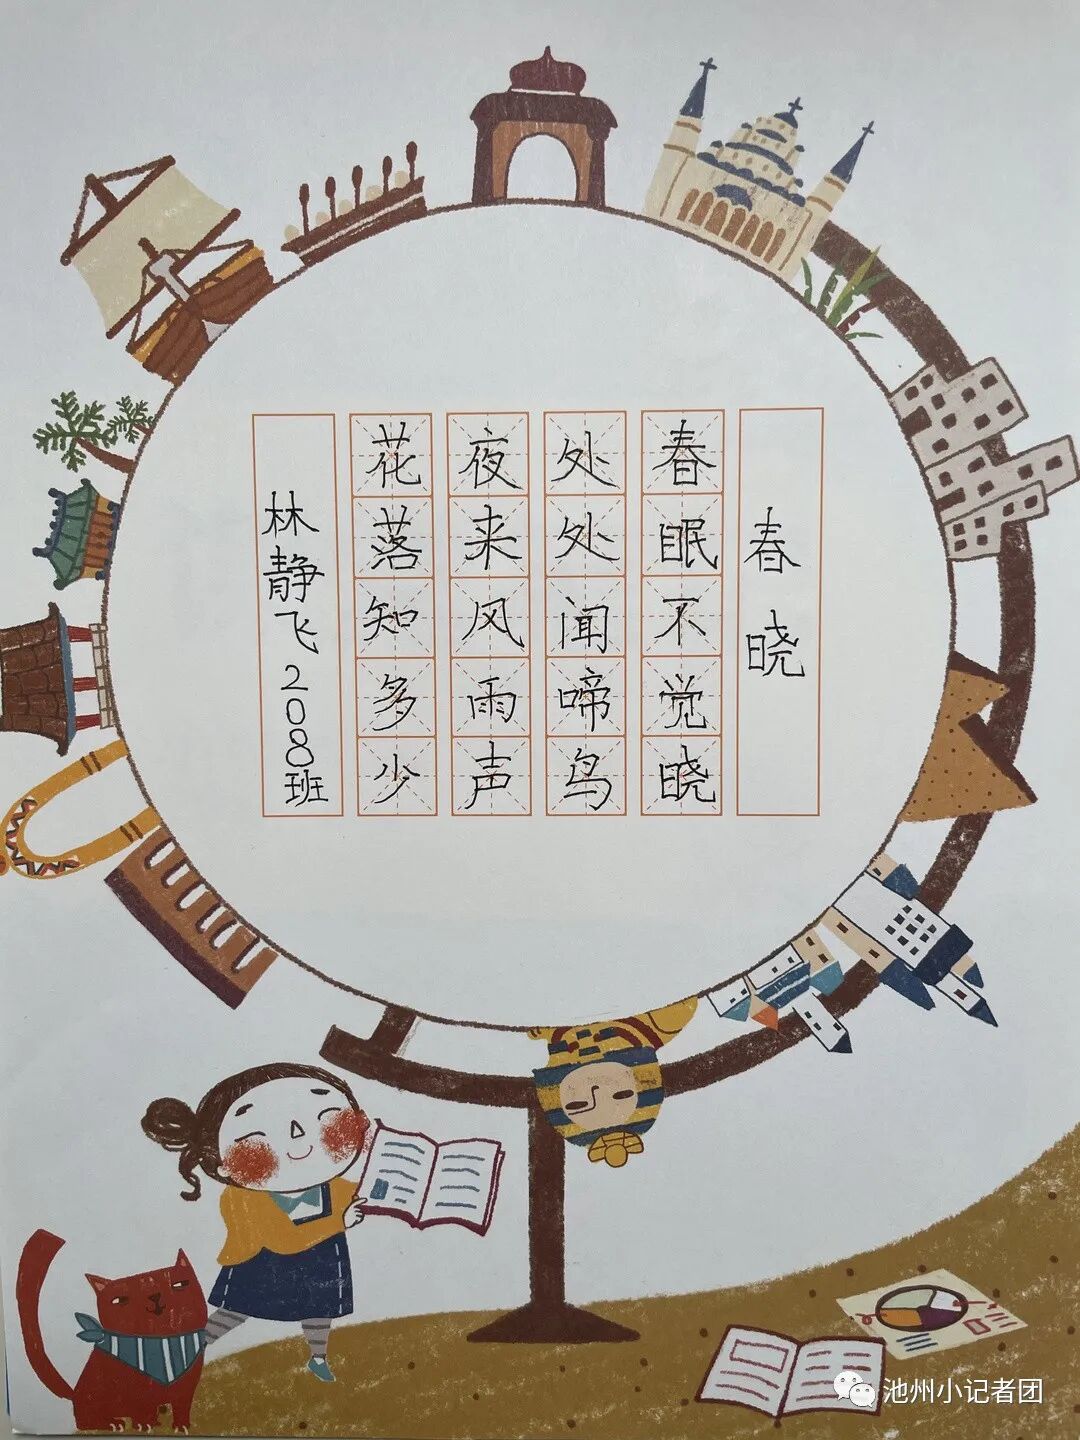 春晓
春眠不觉晓
处处闻啼鸟
夜来风雨声
花落知多少
林静飞208班
池州小记者团